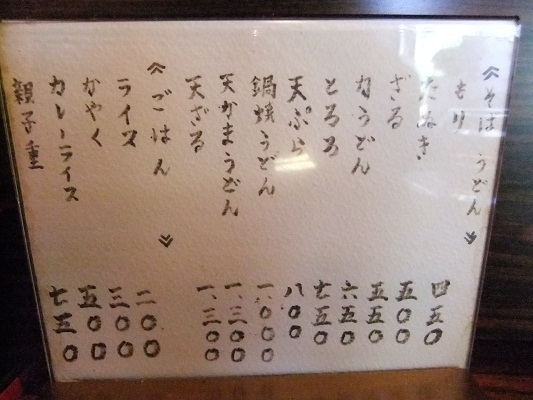 《そば うどん》
もり 四五〇
たぬき 五〇〇
ざる 五五〇
力うどん 六五〇
とろろ 七五〇
天ぷら 八〇〇
鍋焼うどん 一、〇〇〇
天かまうどん 一、三〇〇
天ざる 一、三〇〇
《ごはん》
ライス 二〇〇
かやく 三〇〇
カレーライス 五〇〇
親子重 七五〇